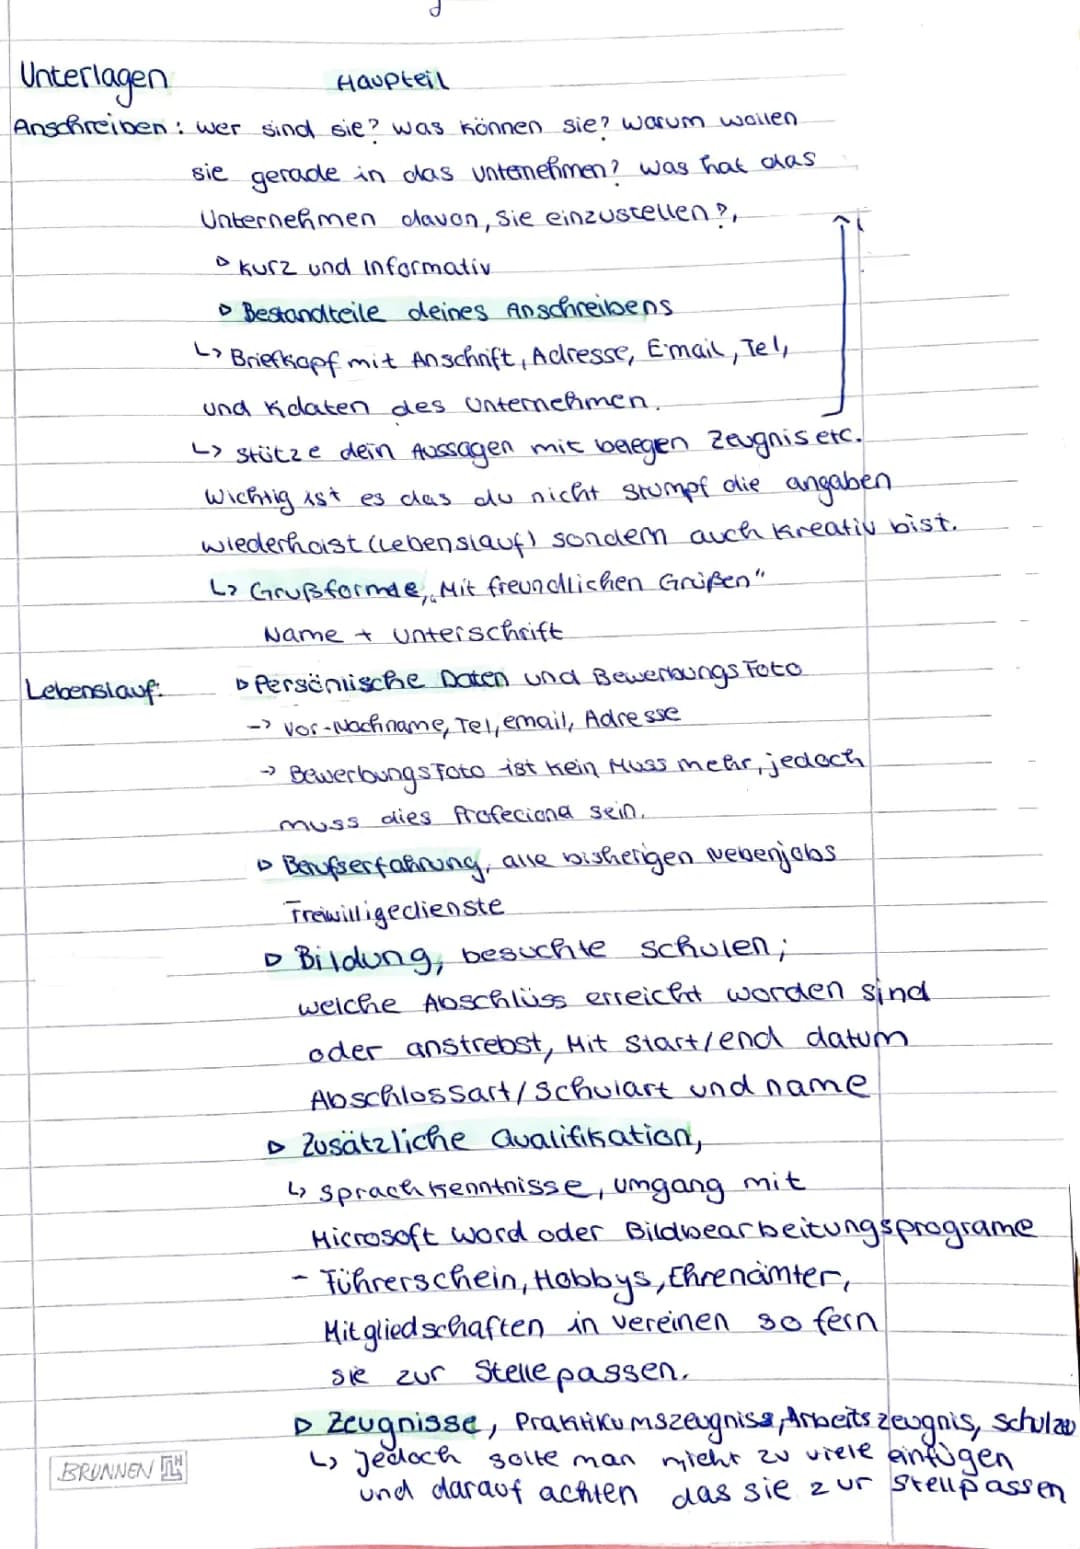 Unterlagen Haupteil
Anschreiben: wer sind sie? was können sie? warum wollen
sie gerade in das unternehmen? was hat das
Unternehmen davon, Sie einzustellen?,
▷ kurz und Informativ
▷ Bestandteile deines Anschreibens
↳ Briefkopf mit Anschrift, Adresse, Email, Tel,
und Kdaten des Unternehmen.
↳ stütze dein Aussagen mit belegen Zeugnis etc.
Wichtig ist es das du nicht stumpf die angaben
wiederholst (Lebenslauf) sondern auch kreativ bist.
↳ Grußformde, "Mit freundlichen Grüßen"
Name + Unterschrift
Lebenslauf: ▷ Persönlische Daten und Bewerbungs Foto
-> Vor-Nachname, Tel, email, Adresse
→ Bewerbungs Foto ist kein Muss mehr, jedoch
muss dies Profeciona sein.
▷ Berufserfahrung, alle bisherigen Nebenjobs
Freiwilligedienste
▷ Bildung, besuchte schulen;
welche Abschlüss erreicht worden sind
oder anstrebst, Mit Start/end datum
Abschlossart/Schulart und name
▷ Zusätzliche Qualifikation,
↳ sprachkenntnisse, umgang mit
Microsoft word oder Bildbearbeitungsprograme
- Führerschein, Hobbys, Ehrenämter,
Mitgliedschaften in vereinen so fern
sie zur Stelle passen.
▷ Zeugnisse, Praktikumszeugniss, Arbeitszeugnis, Schulze
↳ jedoch solte man nicht zu viele einfügen
und darauf achten das sie zur Stellpassen
BRUNNEN